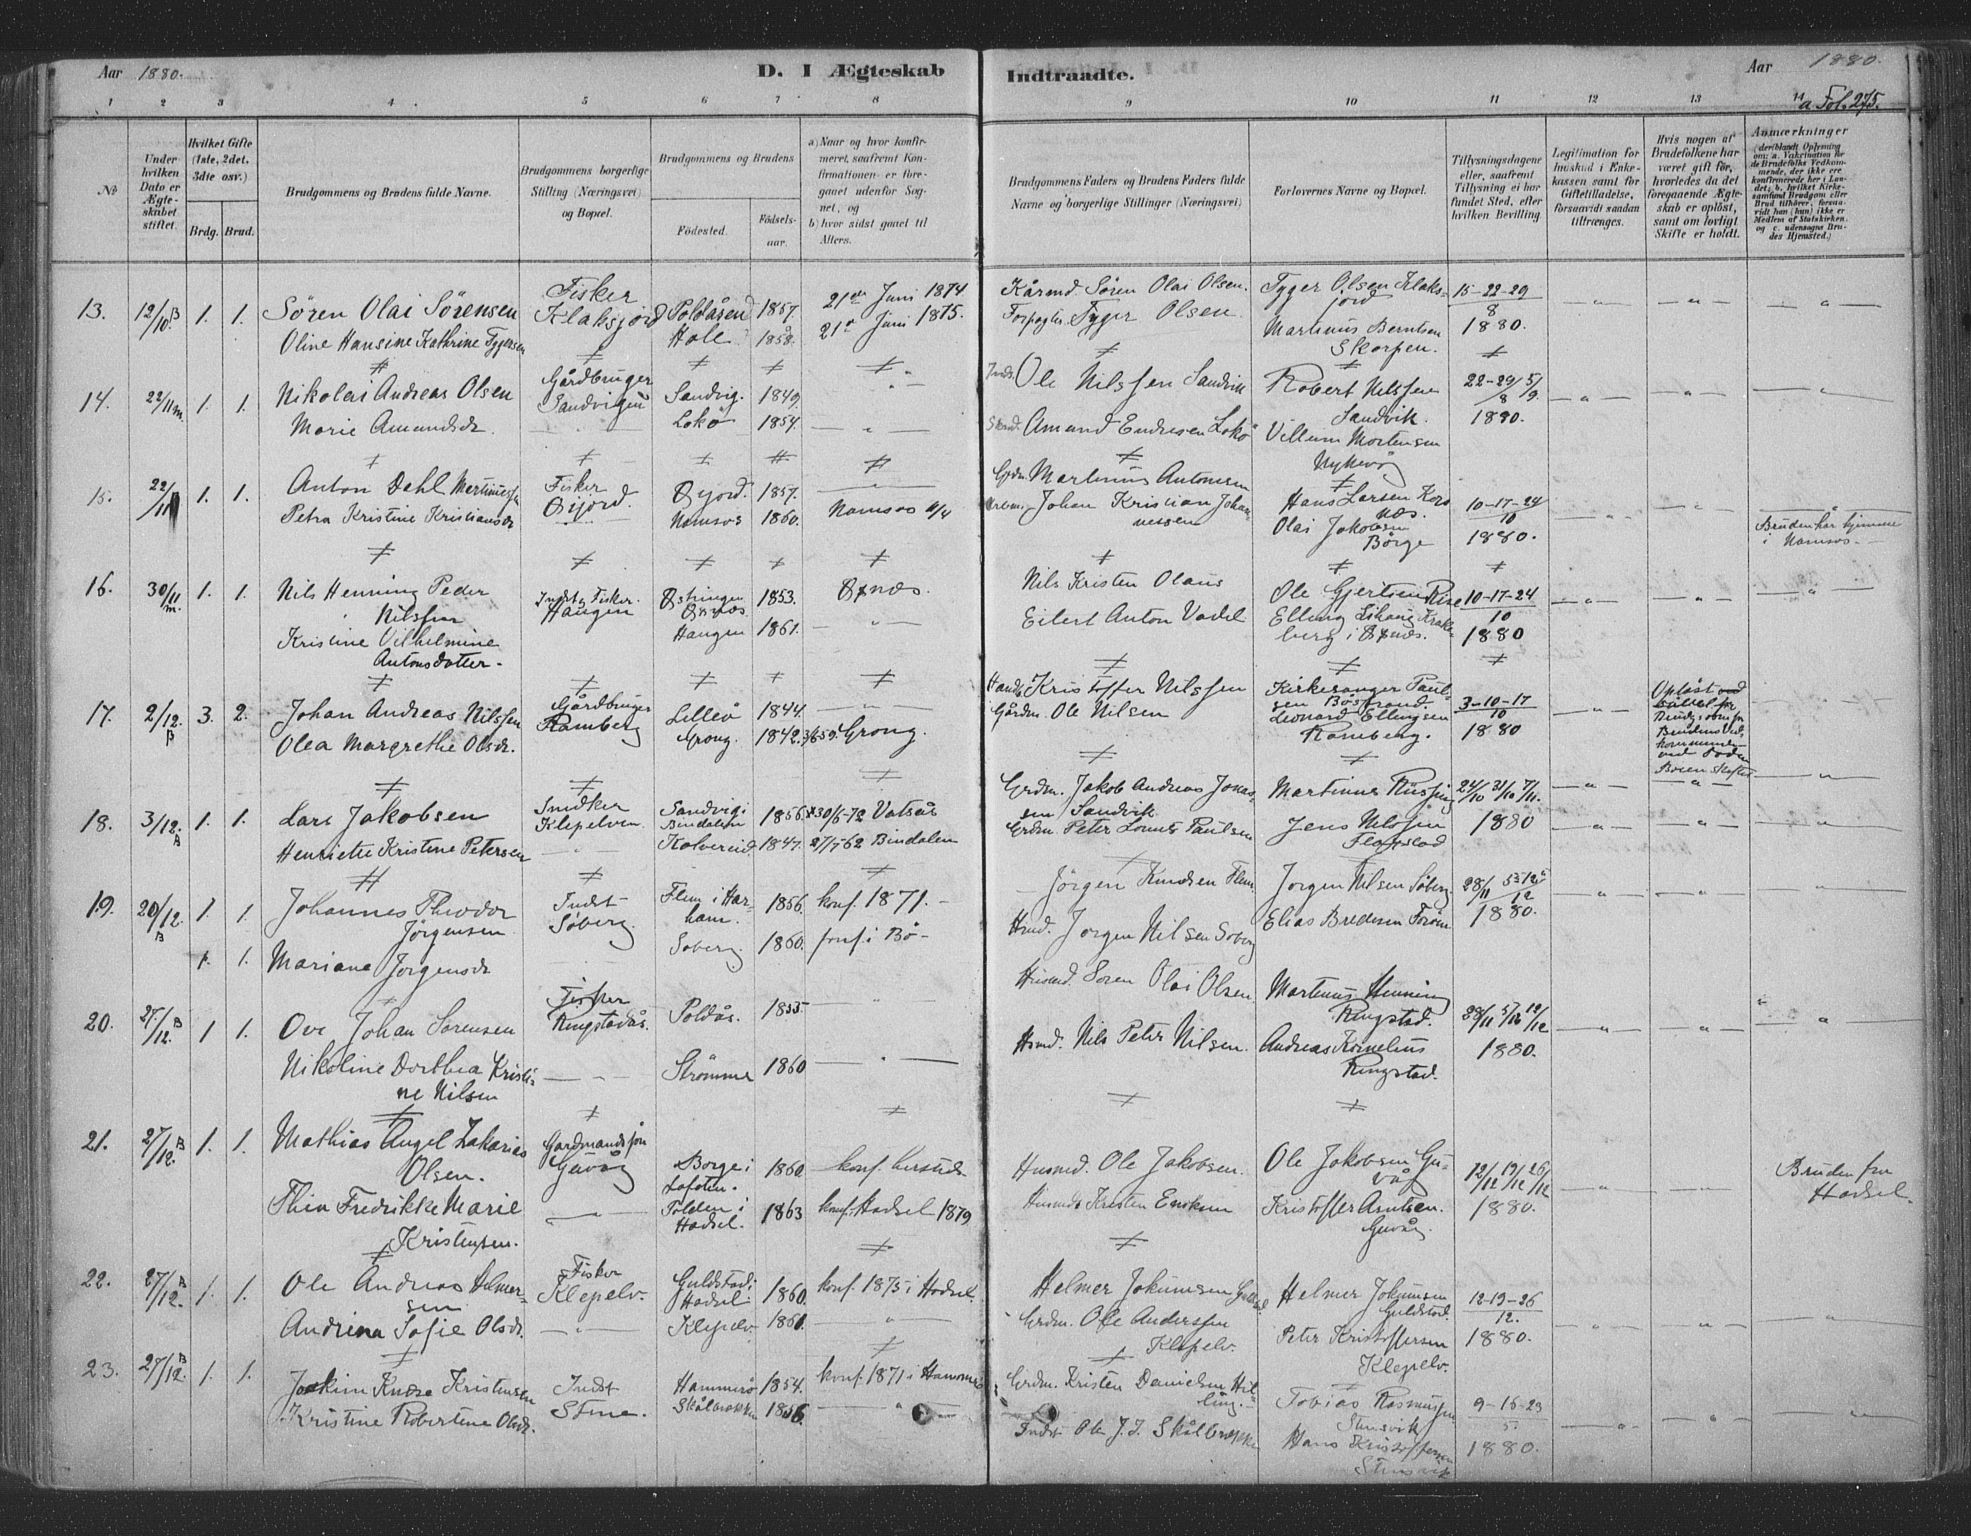 Aar 1880.
D. I Ægteskab
Indtraadte.
Aar 1880.
1 2 3 4 5 6 7 8 9 10 11 12 13 14
a Fol. 275.
№
Under hvilken Dato er Ægteskabet stiftet.
Hvilket Gifte (1ste, 2det, 3die osv.)
Brdg. Brud.
Brudgommens og Brudens fulde Navne.
Brudgommens borgerlige Stilling (Næringsvei) og Bopæl.
Brudgommens og Brudens
Fødested.
Fødselsaar.
a) Naar og hvor konfirmeret, saafremt Konfirmationen er foregaaet udenfor Sognet, og
b) hvor sidst gaaet til Alters.
Brudgommens Faders og Brudens Faders fulde Navne og borgerlige Stillinger (Næringsvei)
Forlovernes Navne og Bopæl.
Tillysningsdagene eller, saafremt Tillysning ei har fundet Sted, efter hvilken Bevilling.
Legitimation for Indskud i Enkekassen samt for Giftetilladelse, forsaavidt saadan tiltrænges.
Hvis nogen af Brudefolkene har været gift før, hvorledes da det foregaaende Ægteskab er opløst, samt om lovligt Skifte er holdt.
Anmærkninger
(deriblandt Oplysning om: a. Vaksination for de Brudefolks Vedkommende, der ikke ere konfirmerede her i Landet; b. hvilket Kirkesamfund Brudgom eller Brud tilhører, forsaavidt han (hun) ikke er Medlem af Statskirken, og c. udensogns Brudes Hjemsted.)
13. 12/10 B 1. 1. Søren Olai Sørensen Fisker Klaksjord Poldåsen 1857. 21de Juni 1874 Søren Olai Olsen. Tyger Olsen Klaksjord 15-22-29/8
Oline Hansine Kathrine Tygersen Holl 1858. 21de Juni 1875. Forpagter Tyger Olsen. Martinus Berntsen Skorpen. 1880.
14. 22/11 m. 1. 1. Nikolai Andreas Olsen Gårdbruger Sandvigen Sandvig. 1849. Ole Nilssen Sandvik Robert Nilssen Sandvik. 22-29/8 5/9.
Marie Amundsdr. Lokø 1854. Amund Endresen Lokø Villum Mortensen Nykvåg 1880.
15. 22/11 1. 1. Anton Dahl Martinussen Fisker Øijord. Øijord. 1857. Grdm. Martinus Antonsen Hans Larsen 10-17-24/10
Petra Kristine Kristiansdr Namsos 1860. Namsos Johan Kristian Johannessen Olai Jakobsen Børge 1880. Bruden har hjemme i Namsos.
16. 30/11 m. 1. 1. Nils Henning Peder Nilssen Indst. Fisker. Haugen Østringen Øxnæs 1853. Øxnæs. Nils Kristen Olaus Ole Gjertsen Rise 10-17-24/10
Kristine Vilhelmine Antonsdatter. Haugen 1861. Eilert Anton Vadel Elling Krakberg i Øxnæs. 1880
17. 2/12. B 3. 2. Johan Andreas Nilssen Gårdbruger Ramberg Lillev 1844. Kristoffer Nilssen Kirkesanger Paulsen Bøstrand. 3-10-17/10
Olea Margrethe Olsdr. Grong. 1842. Grong. Gårdm. Ole Nilsen Leonard Ellingsen Ramberg. 1880
18. 3/12. B 1. 1. Lars Jakobsen Snidker Klepelven Sandvig i Bindalen 1856. 30/6-72 Vatsås Grdm. Jakob Andreas Jonassen Sandvik Martinus 24/10 31/10 7/11.
Henriette Kristine Petersen Kolvereid 1847. 27/7 62 Bindalen Grdm. Peter Lorents Paulsen Jens Nilssen Flagstad 1880
19. 20/12. B 1. 1. Johannes Theodor Jørgensen Indst Søberg. Flem i Harham. 1856. konf. 1871. Jørgen Knudsen Flem Jørgen Nilsen Søberg 28/11 5-12/12
1. 1. Mariane Jørgensdr Søberg 1860. konf. i Bø Hmd. Jørgen Nilsen Søberg Elias Bredesen 1880.
20. 27/12. B 1 1. Ove Johan Sørensen Fisker Ringstadås. Poldås. 1855. Husmd. Søren Olai Olsen Martinus Henning Ringstad. 28/11 5/12 12/12
Nikoline Dorthea Kristine Nilsen Strømme 1860 Hsmd. Nils Peter Nilsen. Andreas Kornelius Ringstad. 1880.
21. 27/12. B 1. 1. Mathias Angel Zakarias Olsen. Gårdmandssøn Guvåg Borge i Lofoten. 1860 konf. hersteds Husmd. Ole Jakobsen. Ole Jakobsen Guvåg 12/12 19/12 26/12
Thea Fredrikke Marie Kristensen. Polden i Hadsel. 1863 konf. Hadsel 1879 Husmd. Kristen Kristoffer Arntsen. Guvåg. 1880. Bruden fra Hadsel.
22. 27/12. B 1. 1. Ole Andreas Helmersen Fisker Klepelv. Guldstad i Hadsel 1860. konf. 1875 i Hadsel. Helmer Jokumsen Helmer Jokumsen Guldstad. 12-19-26/12.
Andrina Sofie Olsdr. Klepelv. 1861. Grdm. Ole Anderssen Klepelv. Peter Kristoffersen Klepelv. 1880.
23. 27/12. B 1. 1. Joakim Kristensen Indst Stene. Hammerø 1854. konf. 1871 i Hammerø Grdm. Kristen Danielsen Tobias Rasmussen Stensvik 9-16-23/5
Kristine Robertine Olsdr. Skålbrækken 1856. Indst Ole J. J. Skålbrækken Hans Kristoffersen Stensvik 1880.